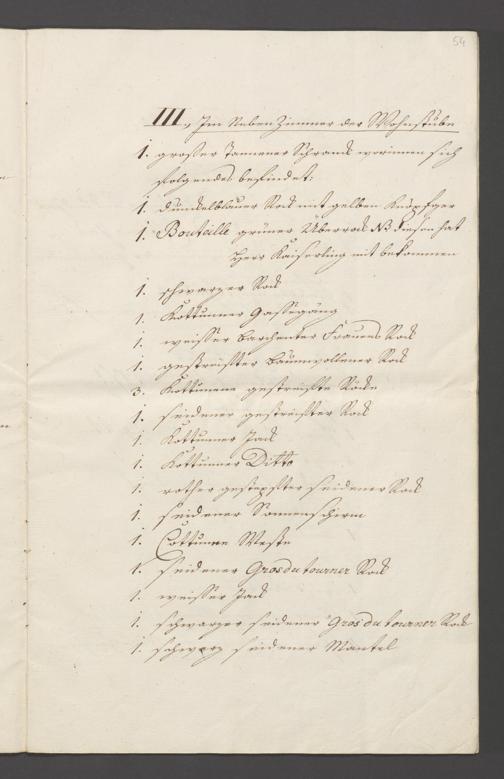 54
III., Im Neben Zimmer der Wohnstube
1. großer Tannener Schranck worinnen sich
folgendes befindet:
1. dunckelblauer Rock mit gelben Knöpfgen
1. Bouteille grüner Überrock NB diesen hat
Herr Kaiserling mit bekommen
1. schwarzer Rock
1. Kottunner
1. weisser barchenter Frauens Rock
1. gestreifter baumwollener Rock
3. Kottunene gestreifte Röcke
1. seidener gestreifter Rock
1. Kottunner Jack
1. Kottunner Ditto
1. rother gestepfter seidener Rock
1. seidener Sonnenschirm
1. Cottunne Weste
1. seidener Gros du tourner Rock
1. weisser Jack
1. schwarzer seidener Gros du tourner Rock
1. schwarz seidener Mantel